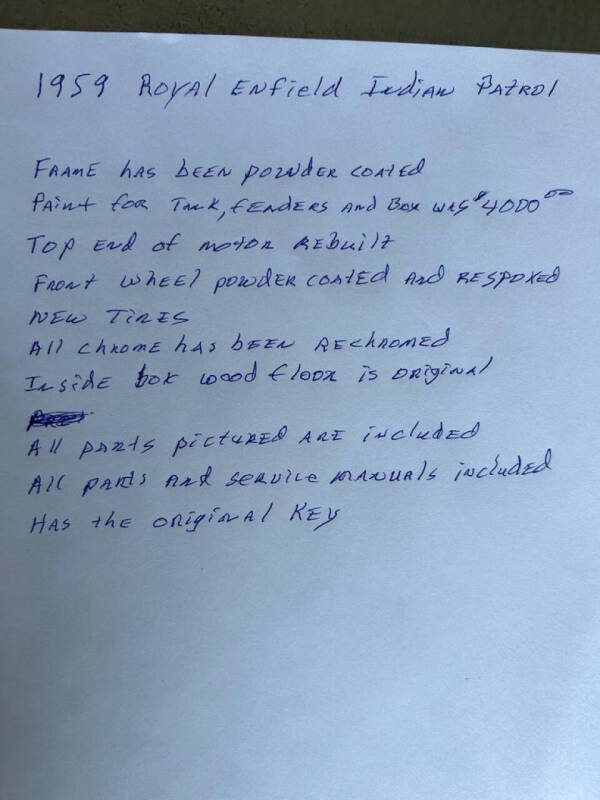 1959 Royal Enfield Indian Patrol
Frame has been powder coated
Paint for Tank, fenders and Box was $4000.00
Top end of motor rebuilt
Front wheel powder coated and respoked
New Tires
All chrome has been rechromed
Inside box wood floor is original
All parts pictured are included
All parts and service manuals included
Has the original key